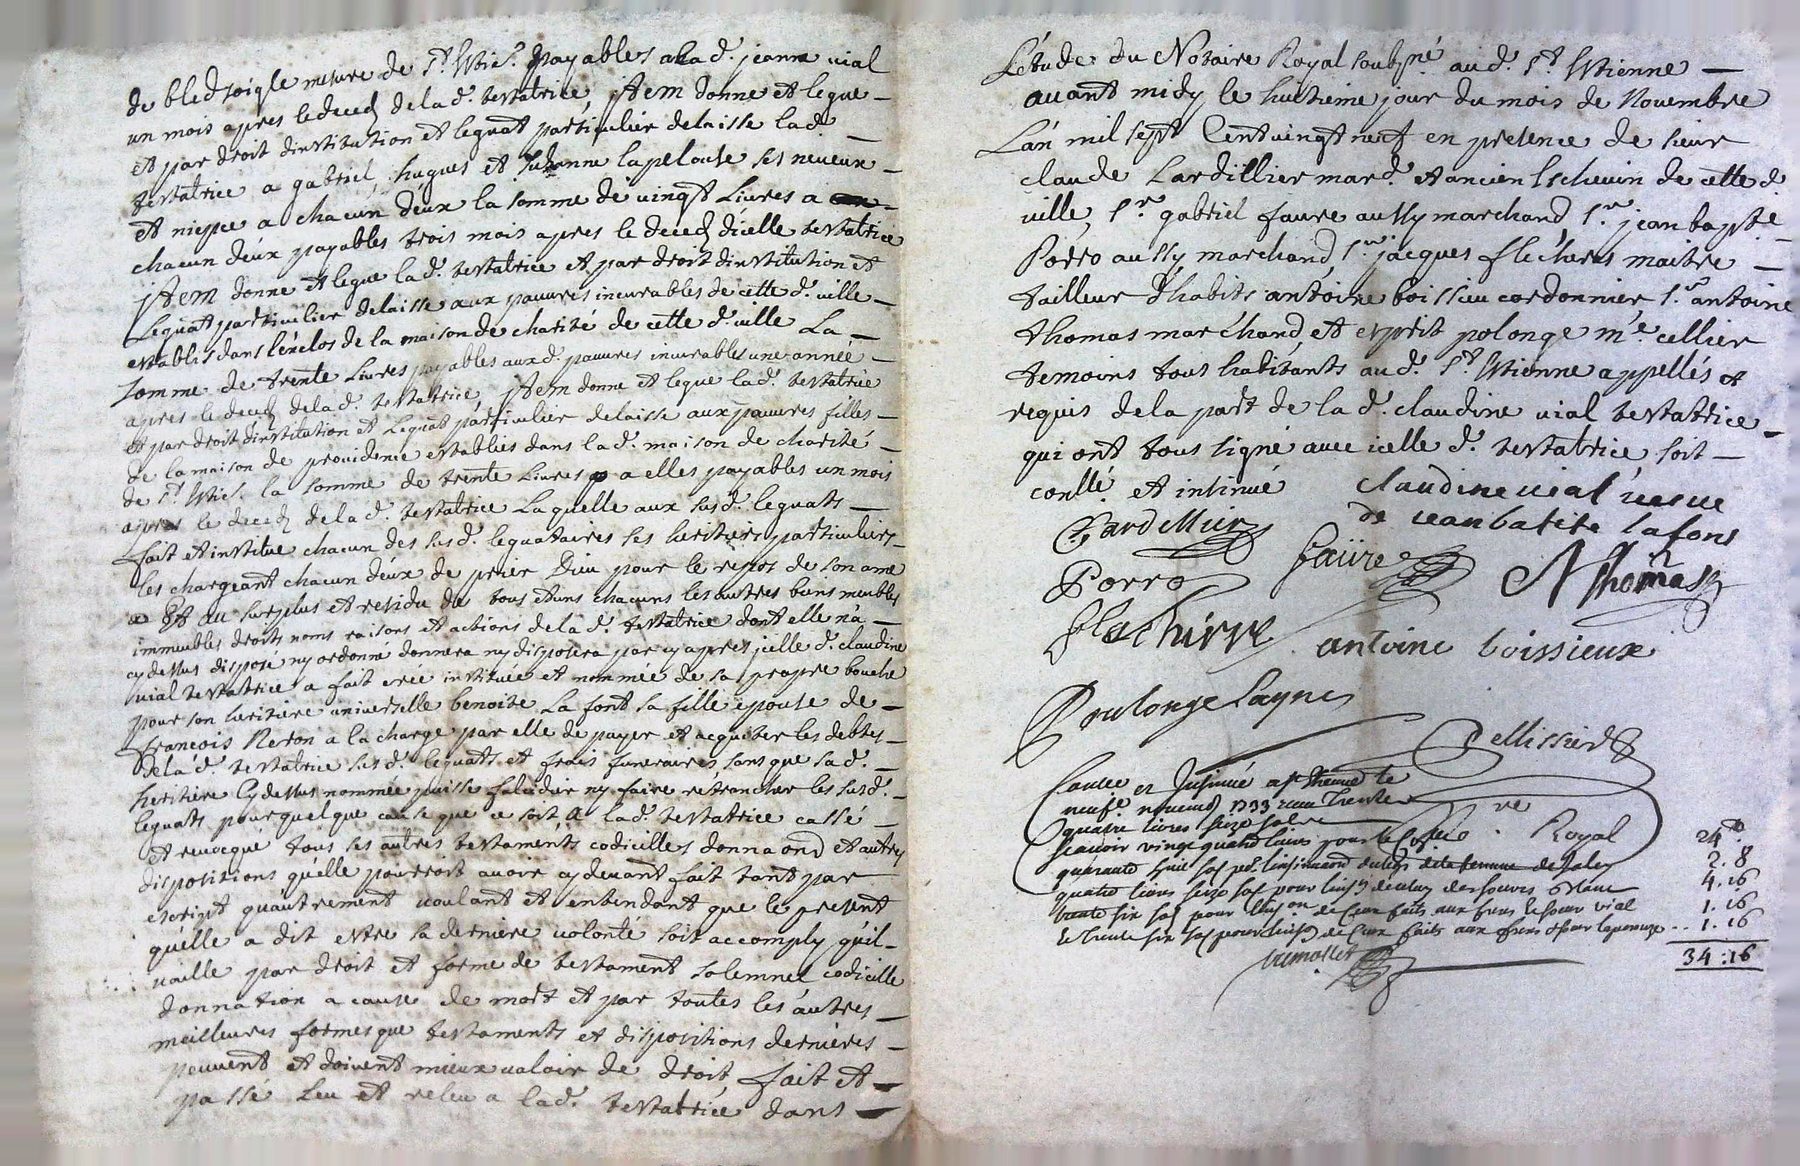 de bled soigle mesure de St. Etie. payables a lad. jeanne vial
un mois apres le deced de lad. testatrice, jtem donne et legue
et par droit dinstitution et leguat particulier delaisse lad.
testatrice a gabriel, hugues et Suzanne lapelouse ses neveux
et niepce a chacun deux la somme de vingt Livres a
chacun deux payables trois mois apres le deced dicelle testatrice
jtem donne et legue lad. testatrice et par droit dinstitution et
Leguat particulier delaisse aux pauvres incurables de cette d. ville
establis dans lenclos de la maison de charité de cette d. ville La
somme de trente Livres payables auxd. pauvres incurables une année
apres le deced de lad. testatrice, jtem donne et legue lad. testatrice
et par droit dinstitution et Leguat particulier delaisse aux pauvres filles
de la maison de providence establies dans lad. maison de charité
de St. Etie. la somme de trente Livres a elles payables un mois
apres le deced de lad. testatrice Laquelle aux susd. leguats
fait et institue chacun des susd. leguataires ses heritiers particuliers
les chargeant chacun deux de prier Dieu pour le repos de son ame
Et au surplus et residu de tous et uns chacuns les autres biens meubles
immeubles droits noms raisons et actions de lad. testatrice dont elle na
cy dessus disposé ny ordonné donnera ny disposera par cy apres jcelle d. claudine
vial testatrice a fait creé instituée et nommée de sa propre bouche
pour son heritiere universelle benoite La font sa fille epouse de
francois Neron a la charge par elle de payer et acquiter les debtes
de lad. testatrice susd. leguats et frais funeraires sans que sad.
heritiere Cy dessus nommée puisse falcidier ny faire retrancher les susd.
leguats pour quelque cause que ce soit a lad. testatrice cassé
et revoqué tous ses autres testaments codicilles donnaond et autres
dispositions quelle pourroit avoir cy devant fait tant par
escript quautrement voulant et entendant que le present
quelle a dit estre sa derniere volonté soit accomply quil
vaille par droit et forme de testament solemnel codicille
donnation a cause de mort et par toutes les autres
meilleures formes que testaments et dispositions dernieres
peuvent et doivent mieux valoir de droit, fait et
passé Leu et releu a lad. testatrice dans
Létude du Notaire Royal soubne. aud. St. Etienne
avant midy le huitieme jour du mois de Novembre
Lan mil sept Cent vingt neuf en presence de sieur
claude Lardillier mard. et ancien Eschevin de cette d.
ville, Sr. gabriel faure aussy marchand, Sr. jean bapte.
Porro aussy marchand, Sr. jacques flechers maitre
tailleur d'habits antoine boissieu cordonnier, Sr. antoine
thomas marchand, et esprit polonge me. cellier
temoins tous habitants aud. St. Etienne appellés et
requis de la part de la d. claudine vial testatrice
qui ont tous signé avec icelle d. testatrice soit
conllé et intinué
claudine vial vesve
de jean batite lafons
Lardillier
faure
Porro
A Thomas
flachirre
antoine boissieux
Poulonge
Pellissier
Royal
neufe. novemb. 1733 Trente
quatre livres seize sols
scavoir vingt quatre livres pour le
24
2. 8
4. 16
1. 16
1. 16
34 : 16